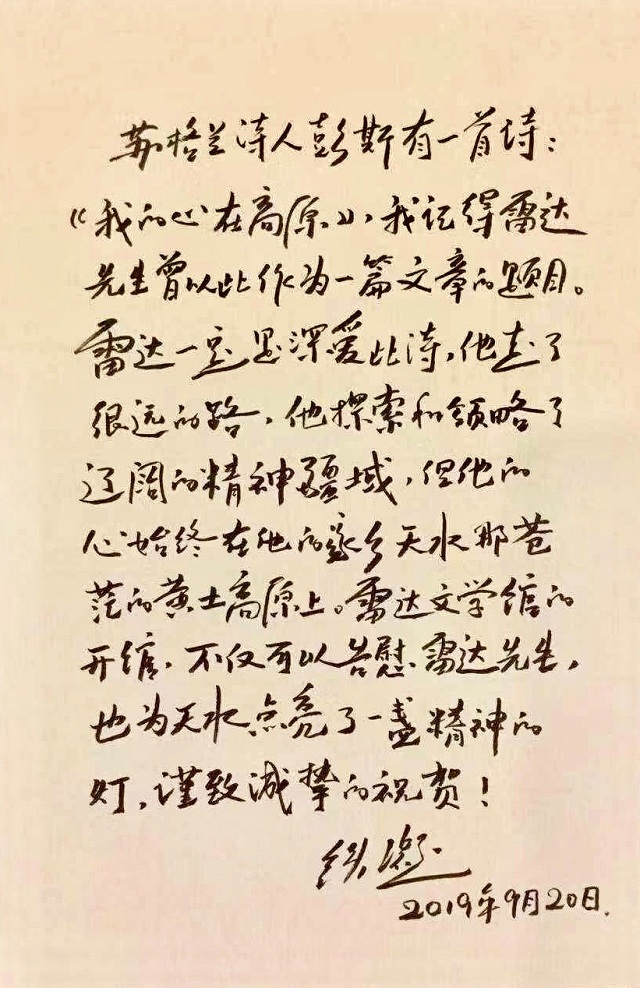 苏格兰诗人彭斯有一首诗：
《我的心在高原》，我记得雷达
先生曾以此作为一篇文章的题目。
雷达一定是深爱此诗，他走了
很远的路，他探索和领略了
辽阔的精神疆域，但他的
心始终在他的家乡天水那苍
茫的黄土高原上。雷达文学馆的
开馆，不仅可以告慰雷达先生，
也为天水点亮了一盏精神的
灯，谨致诚挚的祝贺！
铁凝
2019年9月20日.